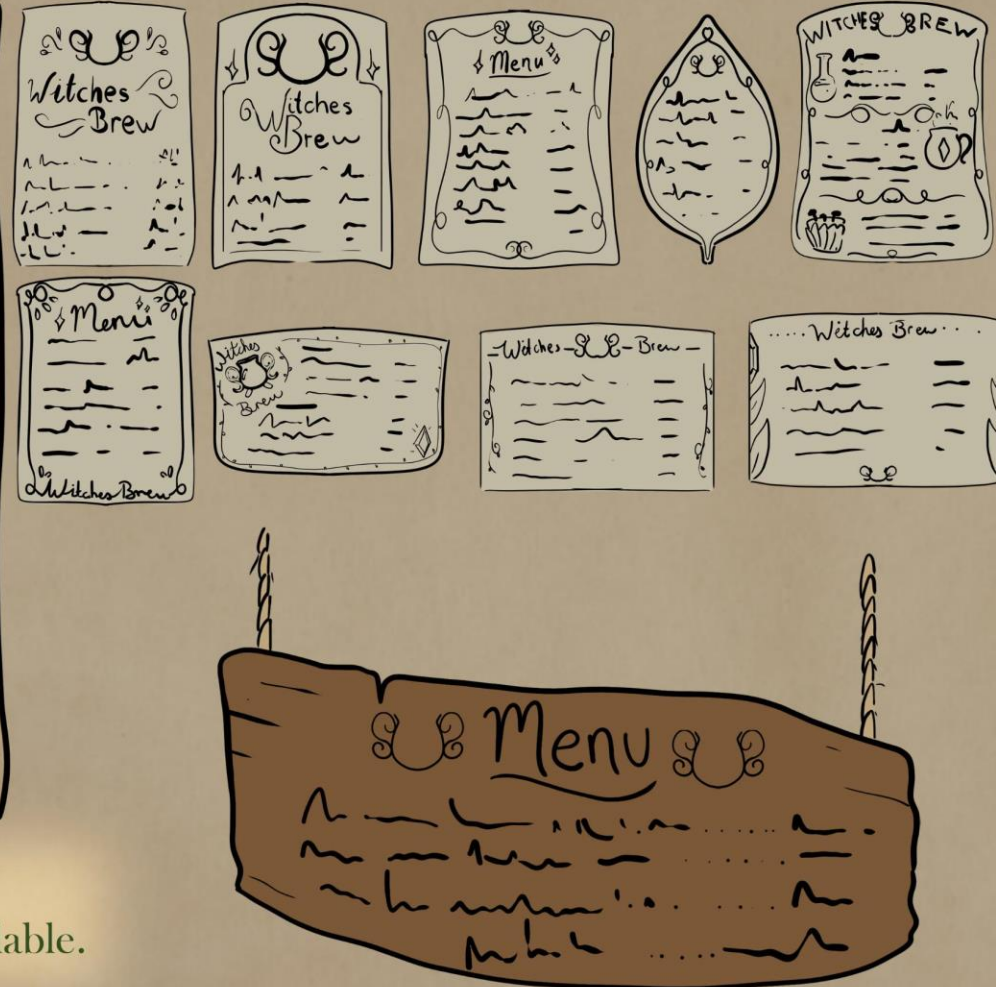 Witches
Brew
Witches
Brew
Menu
WITCHES BREW
Menu
Witches Brew
Witches
Brew
Witches Brew
Witches Brew
Menu